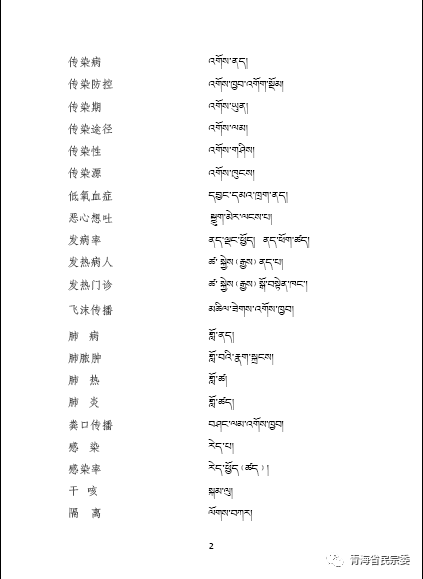 传染病 འགོས་ནད།
传染防控 འགོས་ཁྱབ་འགོག་སྡོམ།
传染期 འགོས་ཡུན།
传染途径 འགོས་ལམ།
传染性 འགོས་གཤིས།
传染源 འགོས་ཁུངས།
低氧血症 དབྱང་དམའ་ཁྲག་ནད།
恶心想吐 སྐྱུག་མེར་ལངས་པ།
发病率 ནད་ལྡང་ཕྱོད། ནད་ཕོག་ཚད།
发热病人 ཚ་སྐྱེས(རྒྱས)ནད་པ།
发热门诊 ཚ་སྐྱེས(རྒྱས)སྒོ་བསྟེན་ཁང་།
飞沫传播 མཆིལ་ཟེགས་འགོས་ཁྱབ།
肺 病 གློ་ནད།
肺脓肿 གློ་བའི་རྣག་སྐྲངས།
肺 热 གློ་ཚ།
肺 炎 གློ་ཚད།
粪口传播 བཤང་ལམ་འགོས་ཁྱབ།
感 染 རེད་པ།
感染率 རེད་ཕྱོད(ཚད)།
干 咳 སྐམ་ལུ།
隔 离 ལོགས་བཀར།
2
青海省民宗委